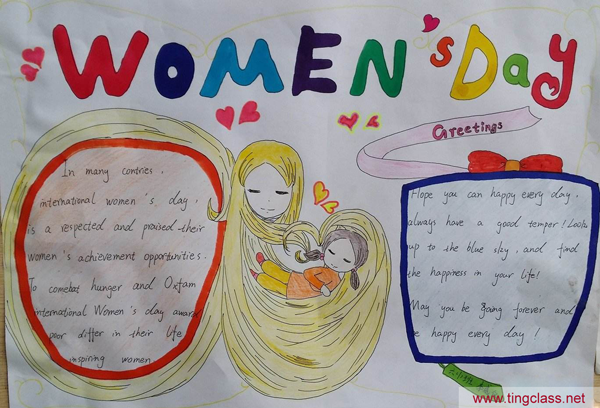 WOMEN'S Day
Greetings
In many contries,
international women's day,
is a respected and praised their
women's achievement opportunities.
To comebat hunger and Oxfam
international Women's day award
poor differ in their life
inspiring women
Hope you can happy every day,
always have a good temper! Looks
up to the blue sky, and find
the happiness in your life!
May you be going forever and
be happy every day!
www.tingclass.net